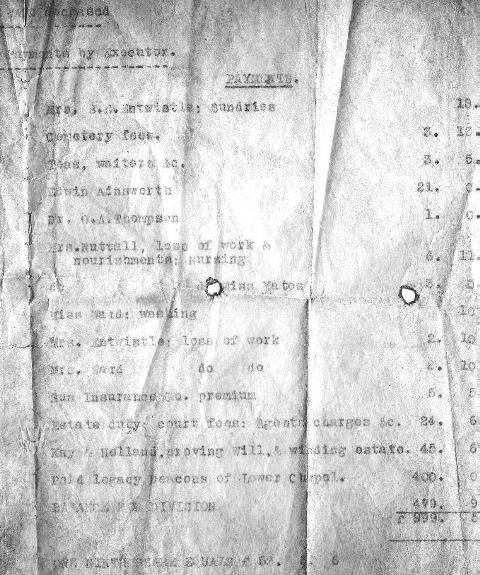 deceased
Payments by Executor.
PAYMENTS.
Mrs. Entwistle; Sundries 18.
Cemetery fees. 3. 12.
Teas, waiters &c. 3. 5.
Edwin Ainsworth 21. 0.
Dr. G.A.Thompson 1. 0.
Mrs.Nuttall, loss of work & nourishments; Nursing 6. 11.
Miss Yates
Miss Ward: washing 10
Mrs. Entwistle; loss of work 2. 10
Mrs. Ward do do 2. 10
Sun Insurance Co. premium 5. 5
Estate duty; court fees; Agents charges &c. 24. 6
Kay & Holland, proving Will, & winding estate. 45. 6
Paid legacy Deacons of Lower Chapel. 400. 0
BALANCE FOR DIVISION 479. 9
£ 999. 6
ONE NINTH SHARE EQUALS £ 53. 6